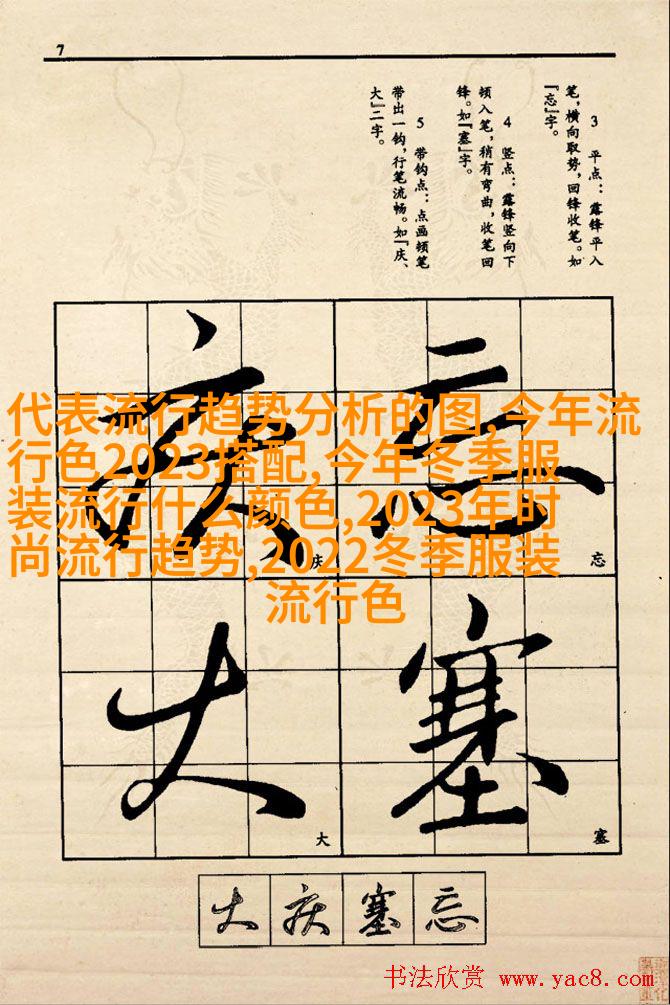 7
3 平点：露锋平入
笔，横向取势，回锋收笔。如
『忘』字。
4 竖点：露锋竖向下
顿入笔，稍有弯曲，收笔回
锋。如『塞』字。
5 带钩点：点画顿笔
带出一钩，行笔流畅。如『庆、
大』二字。
代表流行趋势分析的图,今年流
行色2023搭配,今年冬季服
装流行什么颜色,2023年时
尚流行趋势,2022冬季服装
流行色
忘
庆
忘
庆
塞
大
塞
大
大庆塞忘
书法欣赏 www.yac8.com